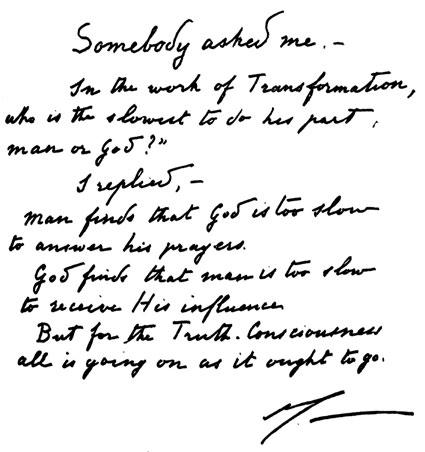 Somebody asked me. –
In the work of Transformation,
who is the slowest to do his part,
man or God?"
I replied, –
man finds that God is too slow
to answer his prayers.
God finds that man is too slow
to receive His influence
But for the Truth-Consciousness
all is going on as it ought to go.